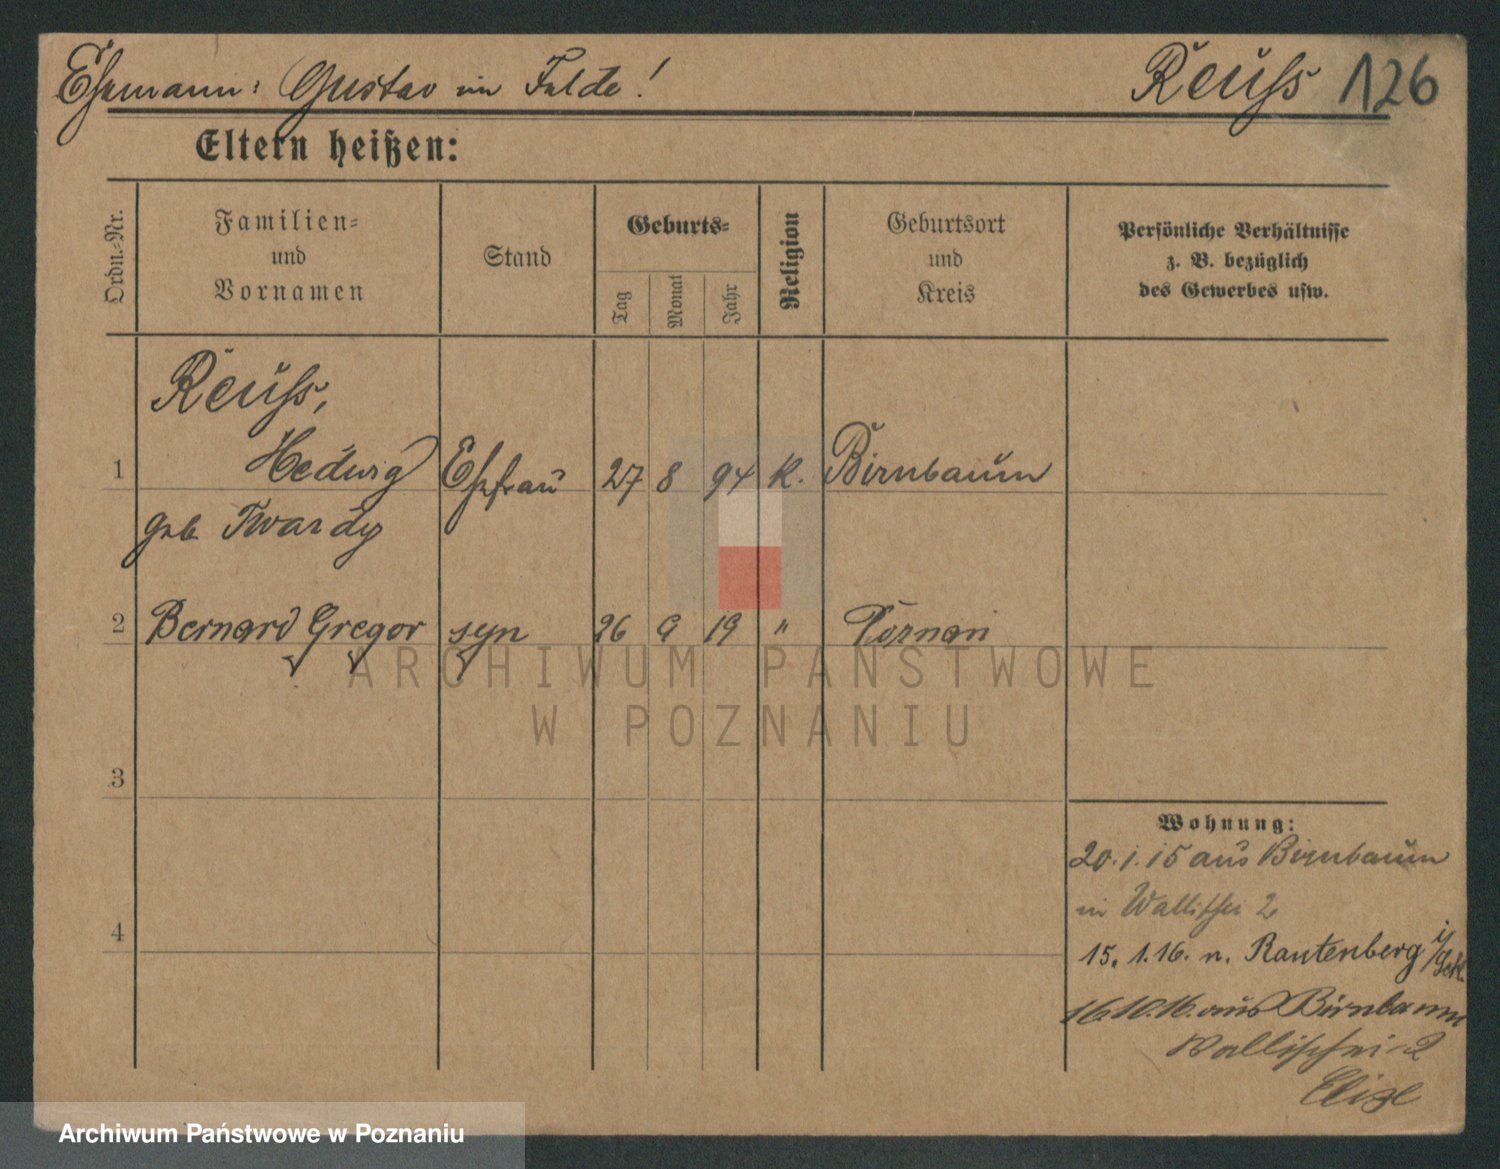 Ehemann: Gustav im Felde!
Reuss 126
Eltern heißen:
Ordn.-Nr.
Familien-
und
Vornamen
Stand
Geburts-
Tag
Monat
Jahr
Religion
Geburtsort
und
Kreis
Persönliche Verhältnisse
z. B. bezüglich
des Gewerbes usw.
Reuss,
1 Hedwig Ehefrau 27 8 94 K. Birnbaum
geb. Twardy
2 Bernard Gregor syn 26 9 19 " Poznań
3
4
Wohnung:
20.1.15 aus Birnbaum
in Wallischei 2
15.1.16. n. Rautenberg i/
16.10.16. aus Birnbaum
Wallischei 2
ARCHIWUM PAŃSTWOWE
W POZNANIU
Archiwum Państwowe w Poznaniu